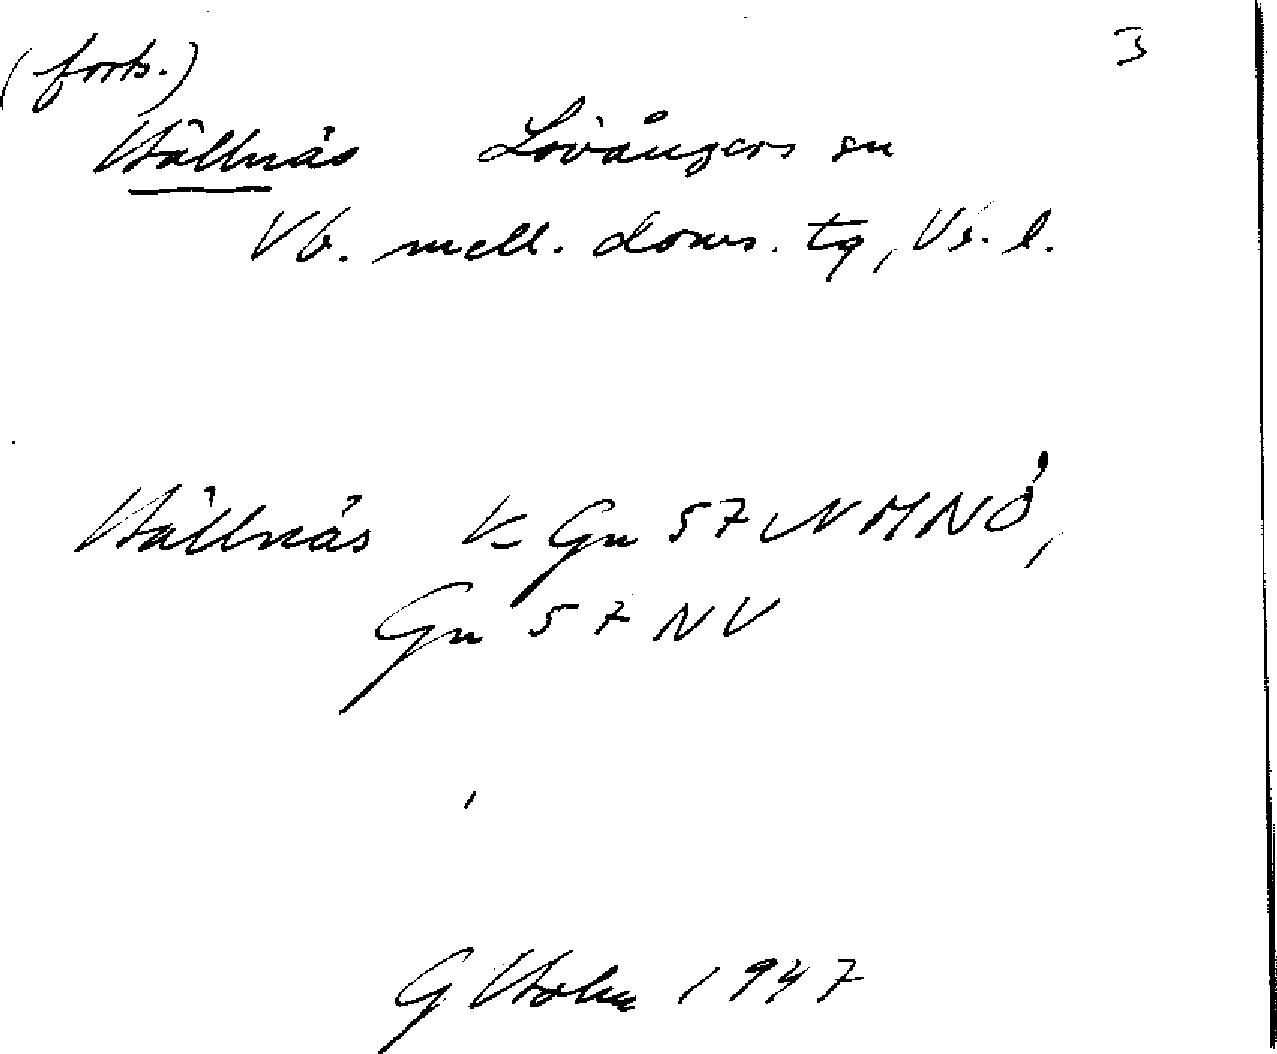 (forts.) 3
Hällnäs Lövångers sn
Vb. mell. doms. tg, Vb. l.
Hällnäs K Gn 57 NMNÖ,
Gn 57 NV
G Holm 1947